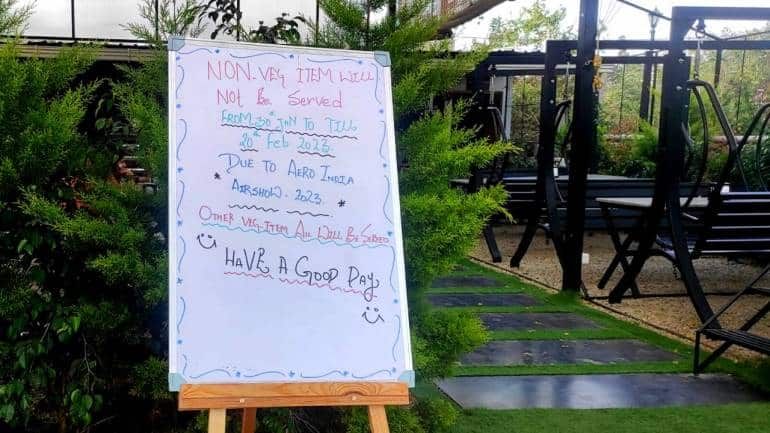 NON-VEG ITEM WILL
Not Be Served
FROM 30th JAN TO TILL
20th Feb 2023.
DUE TO AERO INDIA
* AIRSHOW. 2023. *
OTHER VEG ITEM ALL WILL BE SERVED
HAVE A GOOD DAY